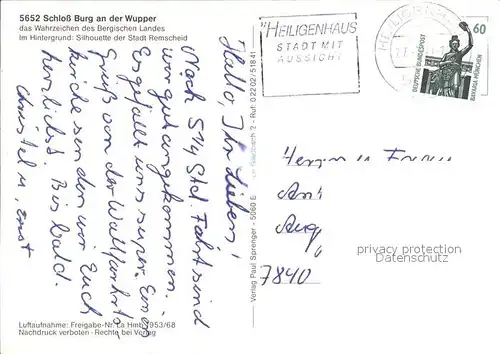 5652 Schloß Burg an der Wupper
das Wahrzeichen des Bergischen Landes
Im Hintergrund: Silhouette der Stadt Remscheid
Hallo, Ihr Lieben,
Nach 5 1/2 Std. Fahrt sind
wir gut angekommen.
Es gefällt uns super. Einen
Gruß von der Wallfahrts-
kirche senden wir Euch
herzlichst. Bis bald.
Christel u. Ernst
Luftaufnahme: Freigabe-Nr. La Hmb 1953/68
Nachdruck verboten · Rechte bei Verlag
Verlag Paul Sprenger · 5060 B 2 · Ruf: 0 22 02/5 18 41
HEILIGENHAUS
STADT MIT
AUSSICHT
HEILIGENHAUS
60
DEUTSCHE BUNDESPOST
BAVARIA MÜNCHEN
Herrn u. Frau
7840
privacy protection
Datenschutz